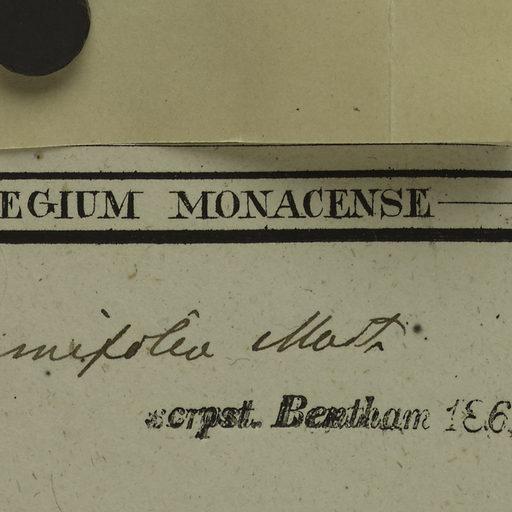 EGIUM MONACENSE
mifolia Mart.
scrpst. Bentham 186